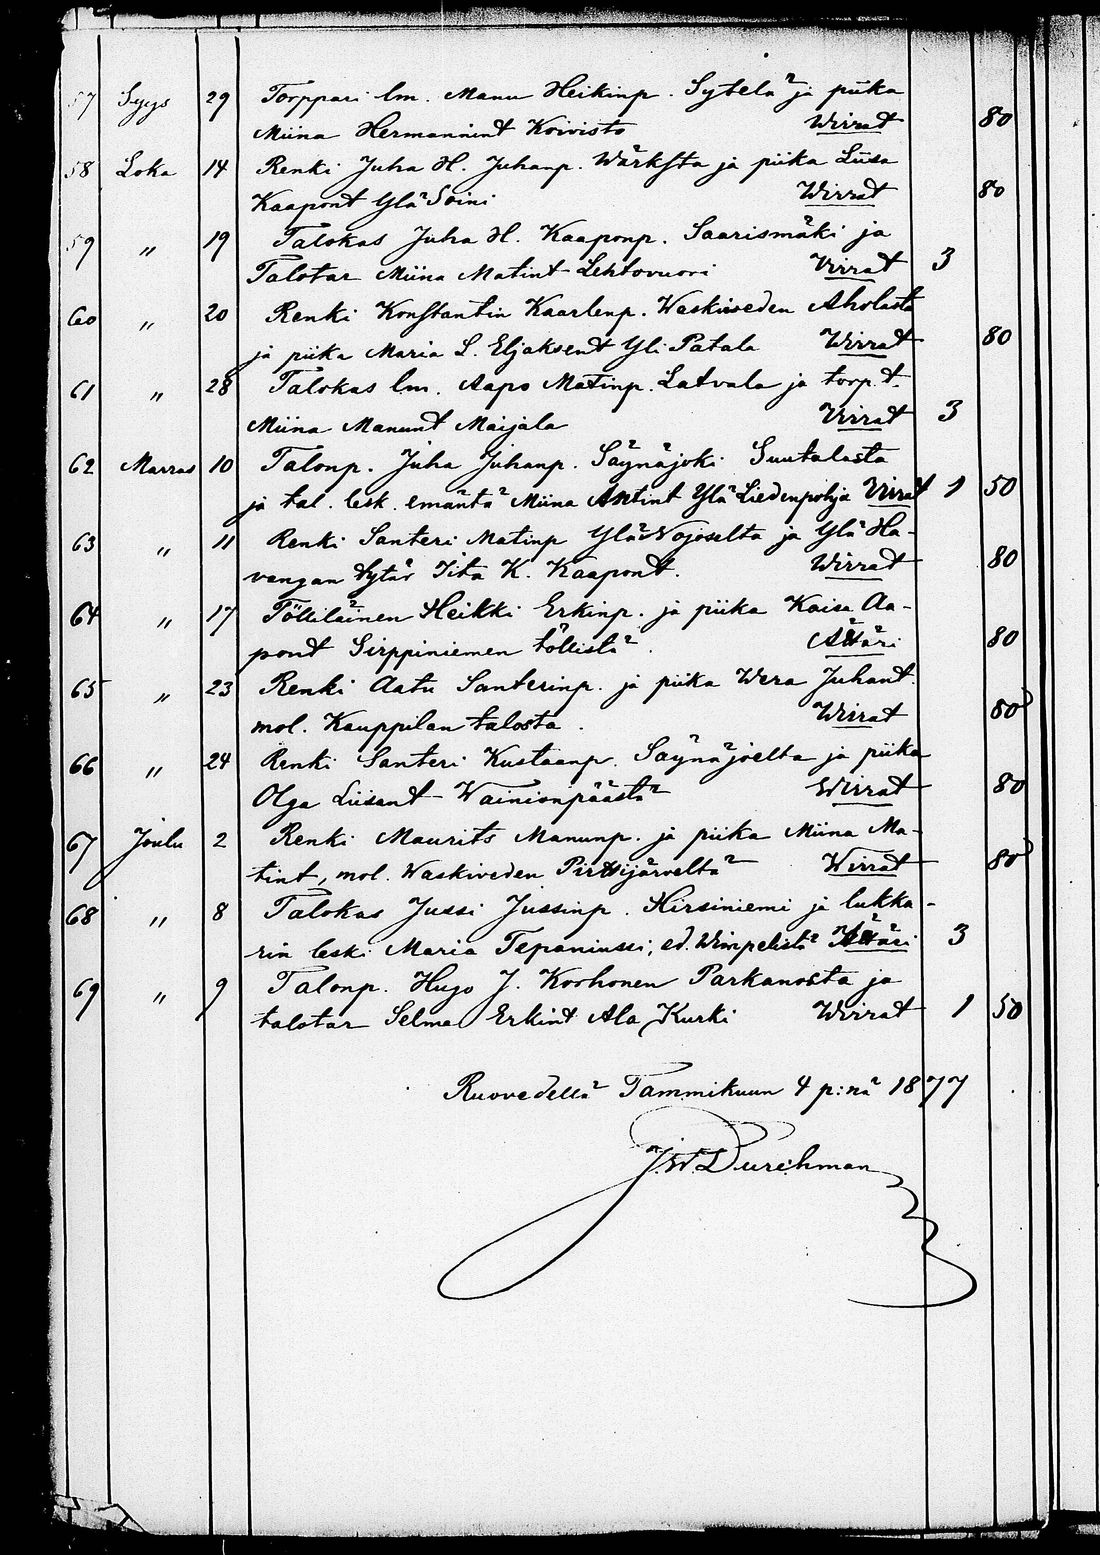 57 Syys 29 Torppari lm. Manu Heikinp. Sytelä ja piika
Miina Hermannint Koivisto Wirrat 80
58 Loka 14 Renki Juha H. Juhanp. Wärksta ja piika Liisa
Kaapont Ylä Soini Wirrat 80
59 " 19 Talokas Juha H. Kaaponp. Saarismäki ja
Talotar Miina Matint Lehtovuori Virrat 3
60 " 20 Renki Konstantin Kaarlenp. Waskiveden Aholasta
ja piika Maria L. Eljaksent Yli Patala Wirrat 80
61 " 28 Talokas lm. Aapo Matinp. Latvala ja torp. t.
Miina Manunt Maijala Virrat 3
62 Marras 10 Talonp. Juha Juhanp. Säynäjoki Suutalasta
ja tal. lesk. emäntä Miina Antint Ylä Liedenpohja Virrat 1 50
63 " 11 Renki Santeri Matinp Ylä Wojoselta ja Ylä Ha-
vangan tytär Iita K. Kaapont. Wirrat 80
64 " 17 Tölliläinen Heikki Erkinp. ja piika Kaisa Aa-
pont Sirppiniemen töllistä. Ätäri 80
65 " 23 Renki Aatu Santerinp. ja piika Wera Juhant.
mol. Kauppilan talosta. Wirrat 80
66 " 24 Renki Santeri Kustaanp. Säynäjoelta ja piika
Olga Liisant Wainionpäästä Wirrat 80
67 Joulu 2 Renki Maurits Manunp. ja piika Miina Ma-
tint, mol. Waskiveden Pirttijärveltä Wirrat 80
68 " 8 Talokas Jussi Jussinp. Hirsiniemi ja lukka-
rin leski Maria Tepaniussi, ed. Wimpelistä Ätäri 3
69 " 9 Talonp. Hugo J. Korhonen Parkanosta ja
talotar Selma Erkint Ala Kurki Wirrat 1 50
Ruovedellä Tammikuun 4 p:nä 1877
J. W. Durchman